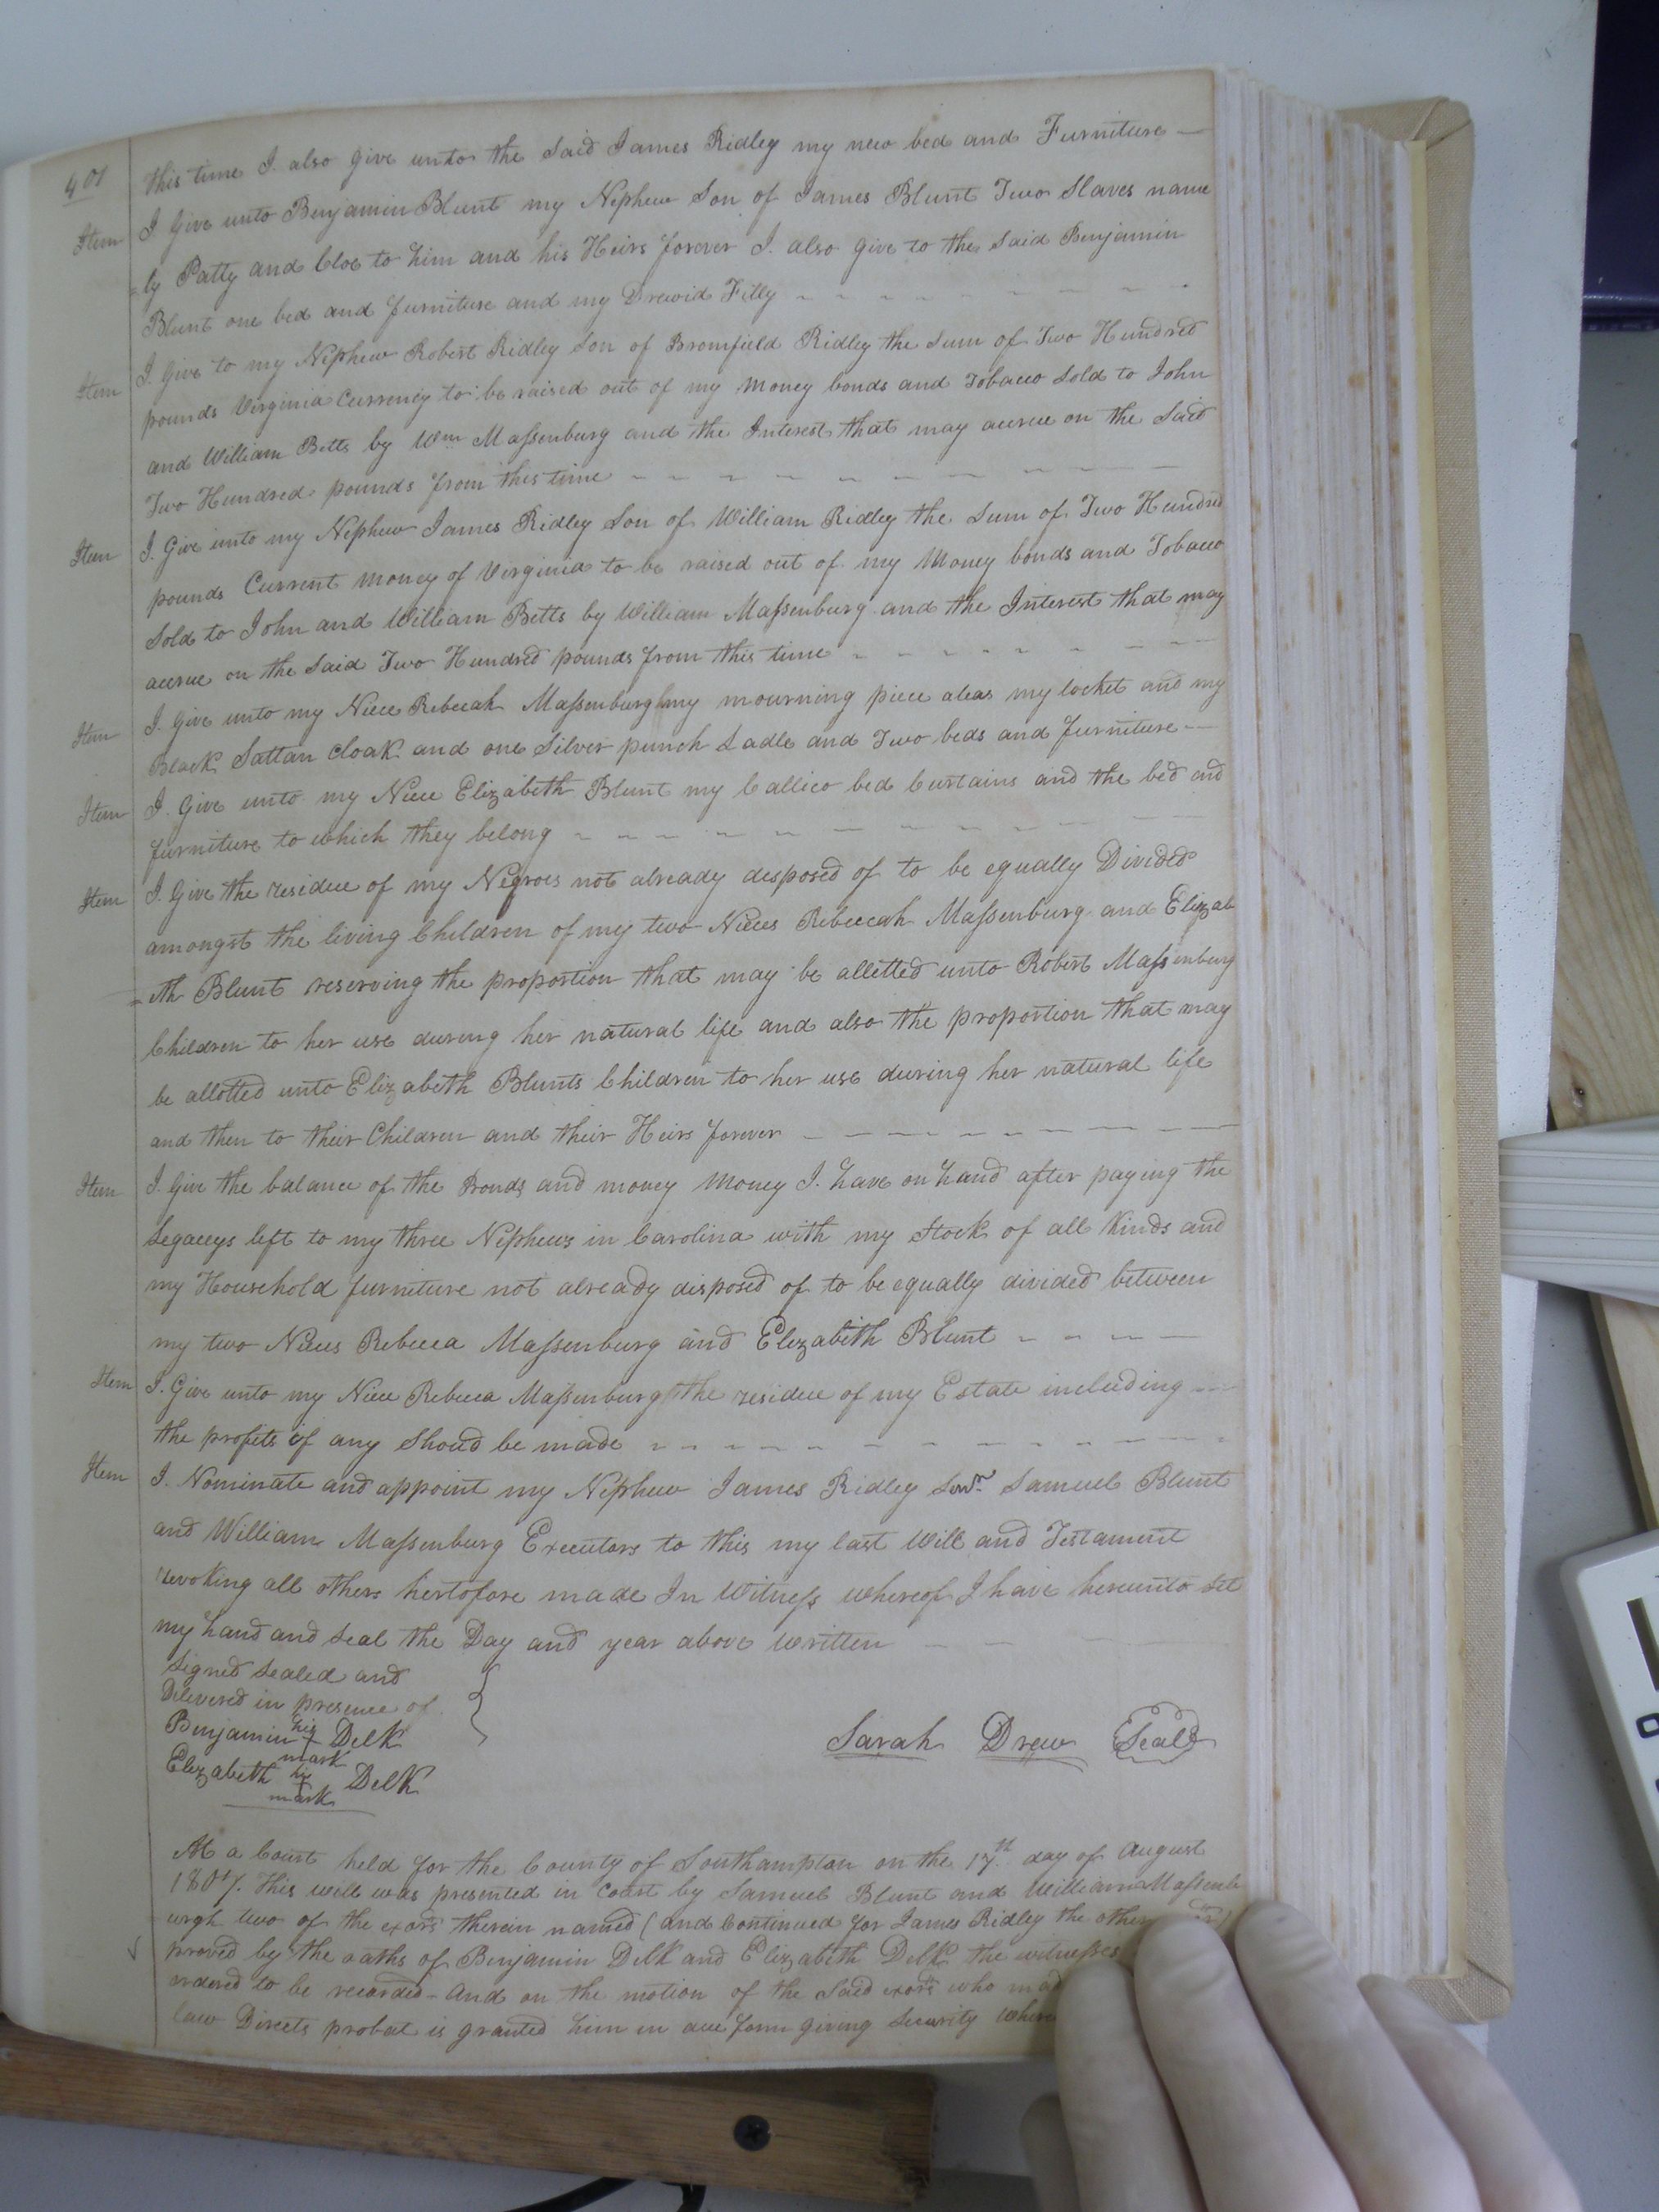 401
this time I also give unto the Said James Ridley my new bed and Furniture —
Item I Give unto Benjamin Blunt my Nephew Son of James Blunt Two Slaves name
=ly Patty and Cloe to him and his Heirs forever I also give to the Said Benjamin
Blunt one bed and furniture and my Filly
Item I Give to my Nephew Robert Ridley Son of Bromfield Ridley the Sum of Two Hundred
pounds Virginia Currency to be raised out of my Money bonds and Tobacco Sold to John
and William Betts by Wm Massenburg and the Interest that may accrue on the Said
Two Hundred pounds from this time
Item I Give unto my Nephew James Ridley Son of William Ridley the Sum of Two Hundred
pounds Current Money of Virginia to be raised out of my Money bonds and Tobacco
Sold to John and William Betts by William Massenburg and the Interest that may
accrue on the Said Two Hundred pounds from this time
Item I Give unto my Niece Rebecah Massenburg my mourning piece aleas my locket and my
Black Sattan Cloak and one Silver punch Ladle and Two beds and furniture —
Item I Give unto my Niece Elizabeth Blunt my Callico bed Curtains and the bed and
furniture to which they belong
Item I Give the residue of my Negroes not already desposed of to be equally Divided
amongst the living Children of my two Nieces Rebeccah Massenburg and Elizab
=eth Blunt reserving the proportion that may be alletted unto Robert Massenburg
Children to her use during her natural life and also the proportion that may
be allotted unto Elizabeth Blunts Children to her use during her natural life
and then to their Children and their Heirs forever
Item I Give the balance of the Bonds and money Money I have on hand after paying the
Legaceys left to my three Nephews in Carolina with my Stock of all Kinds and
my Household furniture not already disposed of to be equally divided between
my two Nieces Rebecca Massenburg and Elizabeth Blunt
Item I Give unto my Niece Rebecca Massenburg the residue of my Estate including
the profits if any Shoud be made
Item I Nominate and appoint my Nephew James Ridley Samuel Blunt
and William Massenburg Executors to this my last Will and Testament
revoking all others hertofore made In Witness whereof I have hereunto Set
my hand and Seal the Day and year above written
Signed Sealed and
Delivered in presence of
Benjamin his + mark Delk
Elizabeth his + mark Delk
Sarah Drew Seal
At a Court held for the County of Southampton on the 17th day of August
1807. This will was presented in Court by Samuel Blunt and William Massenb
urgh two of the exors therein named (and Continued for James Ridley the other
proved by the oaths of Benjamin Delk and Elizabeth Delk the witnesses
ordered to be recorded - And on the motion of the Said exors who mad
law Directs probat is granted him in due form giving Security where